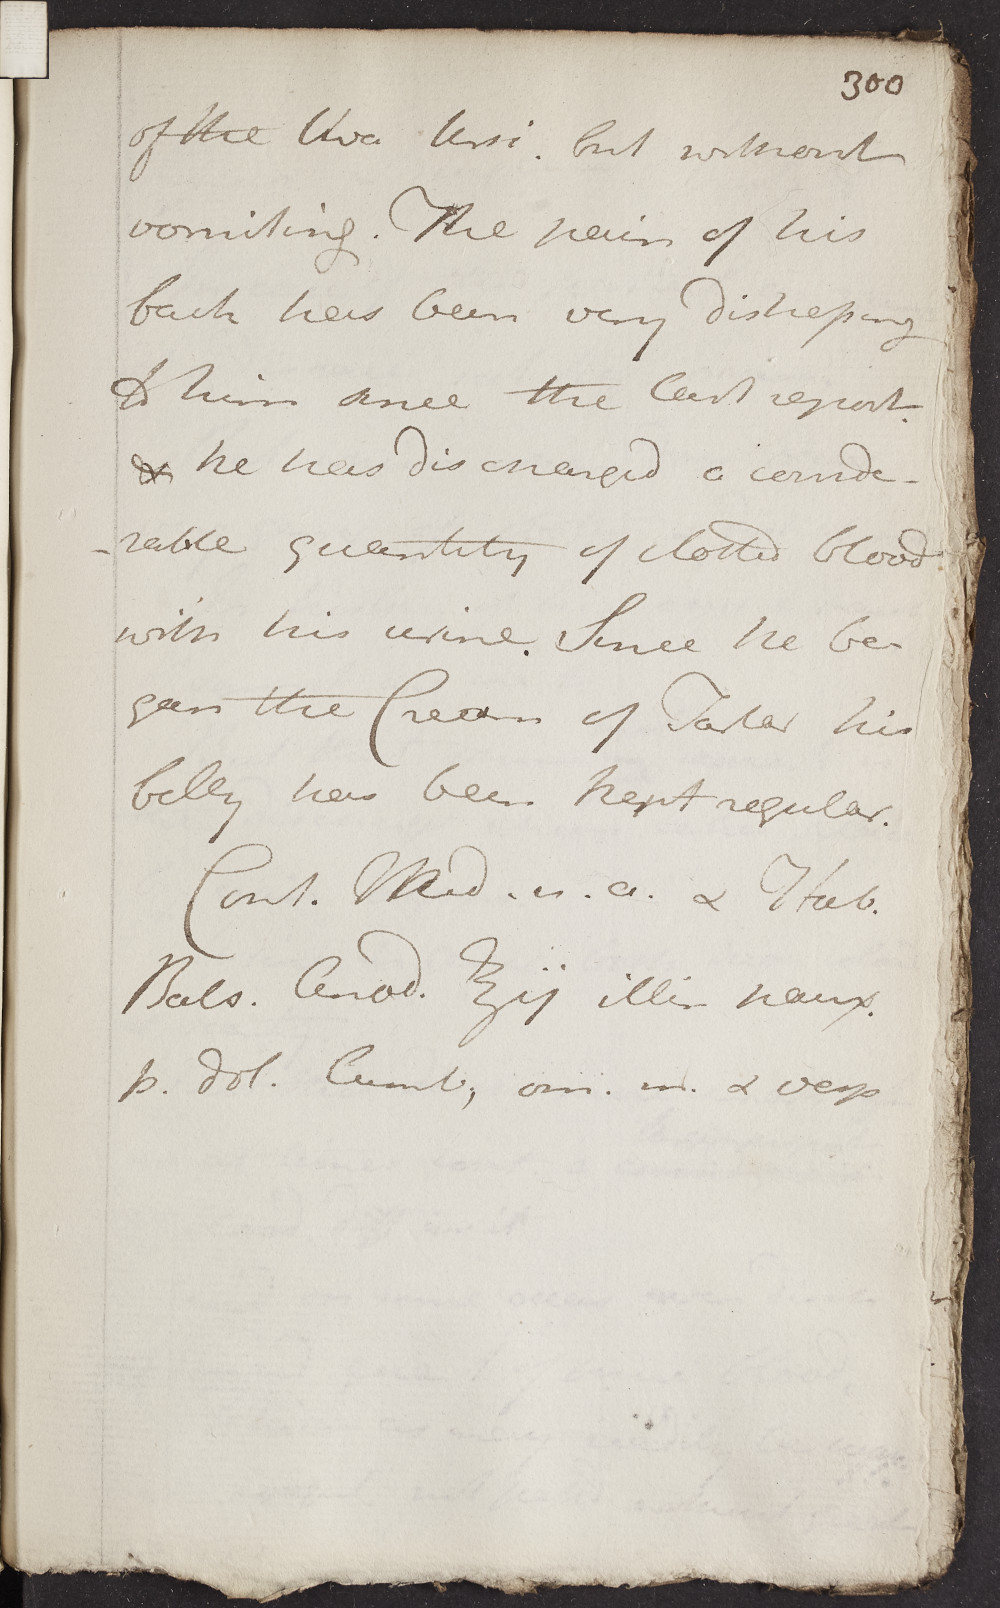 300
of the Uva Ursi. but without
vomiting. The pain of his
back has been very distressing
to him since the last report.
& he has discharged a conside-
-rable quantity of clotted blood
with his urine. Since he be-
gan the Cream of Tartar his
belly has been kept regular.
Cont. Med. u. a. & Hab.
Bals. Anod. ℥ij illin
p. dol. Lumb, om. m. & vesp